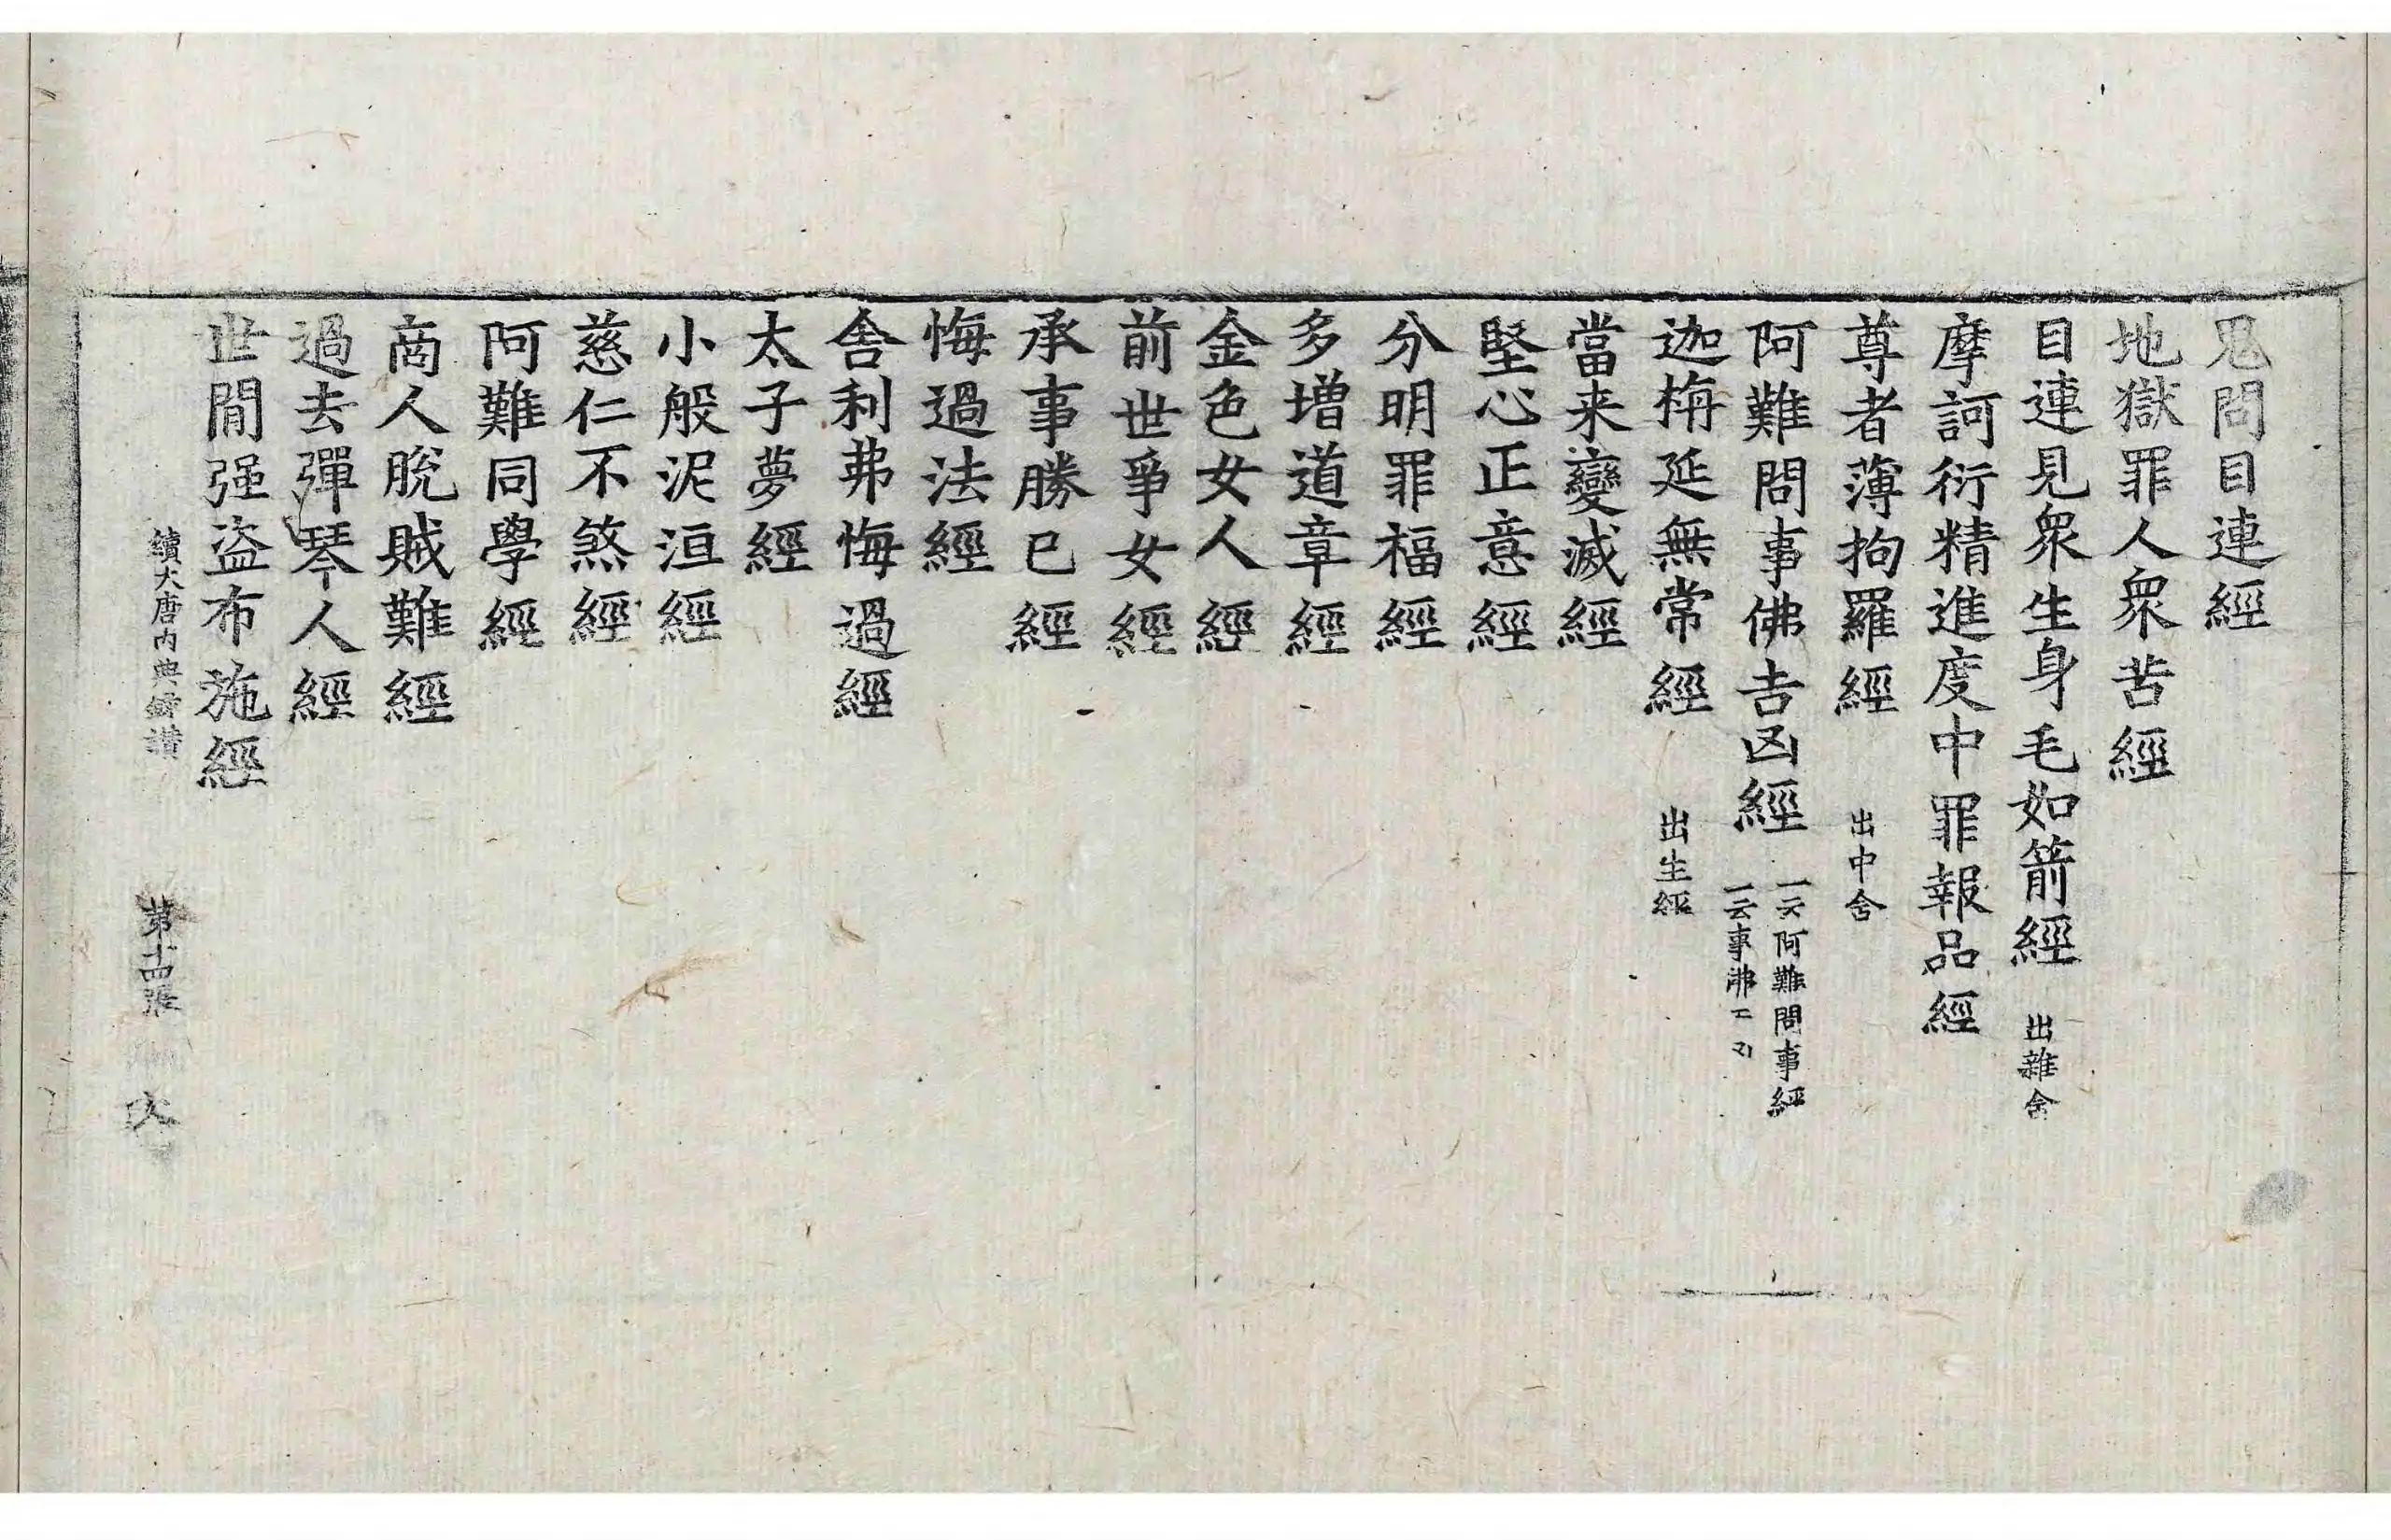 鬼問目連經
地獄罪人衆苦經
目連見衆生身毛如箭經 出雜含
摩訶衍精進度中罪報品經
尊者薄拘羅經 出中含
阿難問事佛吉凶經 一云阿難問事經 一云事佛
迦栴延無常經 出生經
當来變滅經
堅心正意經
分明罪福經
多增道章經
金色女人經
前世爭女經
承事勝已經
悔過法經
舎利弗悔過經
太子夢經
小般泥洹經
慈仁不煞經
阿難同學經
商人脫賊難經
過去彈琴人經
世閒强盗布施經
續大唐内典 第十四張